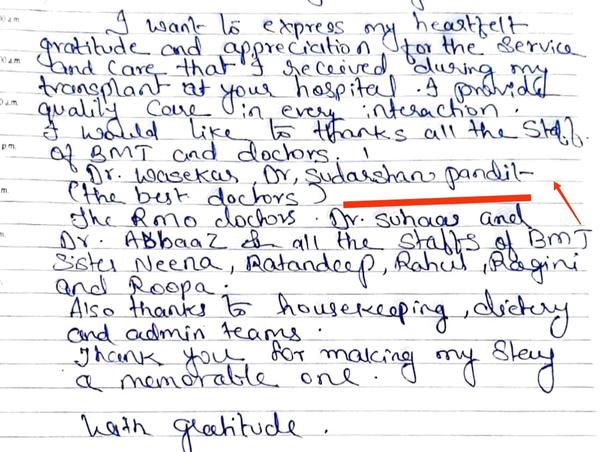 I want to express my heartfelt
gratitude and appreciation for the service
and care that I received during my
transplant at your hospital. I provided
quality care in every interaction.
I would like to thanks all the Staff
of BMT and doctors.
Dr. Wasekar Dr, Sudarshan pandit
(the best doctors)
The RMO doctors. Dr. Suhaas and
Dr. Abbaaz & all the staffs of BMT
Sister Neena, Ratandeep, Rahul, Ragini
and Roopa.
Also thanks to housekeeping, dietery
and admin teams.
Thank you for making my stay
a memorable one.
With gratitude.